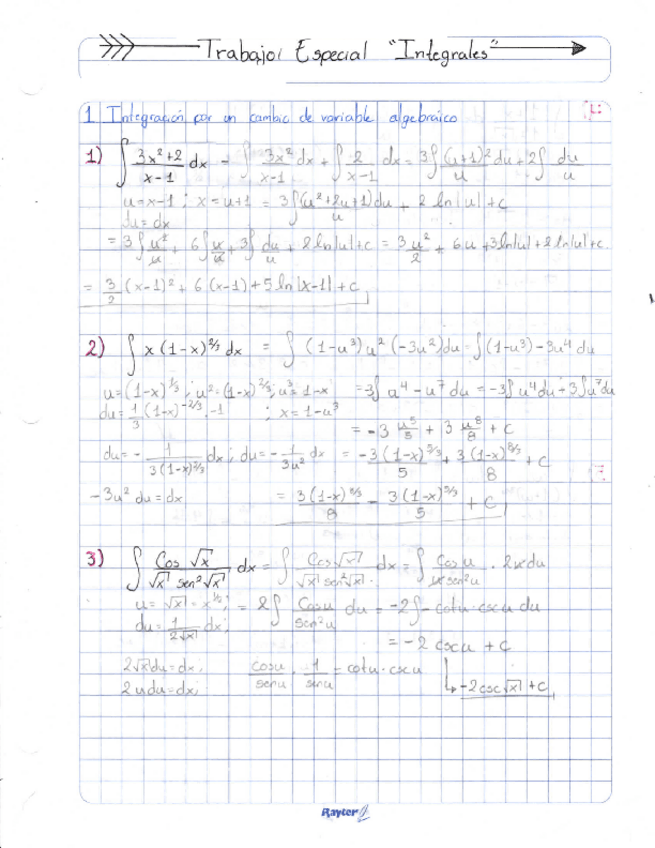 Trabajo Especial "Integrales"
1 Integración por un cambio de variable algebraico
1) ∫ (3x²+2)/(x-1) dx = ∫ 3x²/(x-1) dx + ∫ 2/(x-1) dx = 3∫ (u+1)²/u du + 2∫ du/u
u=x-1 ; x=u+1 = 3∫ (u²+2u+1)/u du + 2 ln|u| + c
du=dx
= 3∫ u²/u + 6∫ u/u + 3∫ du/u + 2 ln|u| + c = 3 u²/2 + 6u + 3ln|u| + 2 ln|u| + c.
= 3/2 (x-1)² + 6(x-1) + 5 ln|x-1| + c
2) ∫ x(1-x)^2/3 dx = ∫ (1-u³)u²(-3u²)du = ∫ (1-u³) - 3u⁴ du
u=(1-x)^1/3 ; u²=(1-x)^2/3 ; u³=1-x = -3∫ u⁴ - u⁷ du = -3∫ u⁴du + 3∫ u⁷du
du = 1/3 (1-x)^-2/3 · -1 ; x = 1-u³
= -3 u⁵/5 + 3 u⁸/8 + c
du = - 1/(3(1-x)^2/3) dx ; du = - 1/(3u²) dx = -3(1-x)^5/3/5 + 3(1-x)^8/3/8 + c
-3u² du = dx = 3(1-x)^8/3/8 - 3(1-x)^5/3/5 + c
3) ∫ Cos √x/(√x sen²√x) dx = ∫ Cos√x/(√x sen²√x) dx = ∫ Cos u/(u sen²u) · 2u du
u = √x = x^1/2 ; = 2∫ Cosu/sen²u du = -2∫ - cotu · cscu du
du = 1/(2√x) dx ;
= -2 cscu + c
2√x du = dx ; cosu/senu · 1/senu = cotu · cscu -2csc√x + c
2udu = dx ;
Rayter